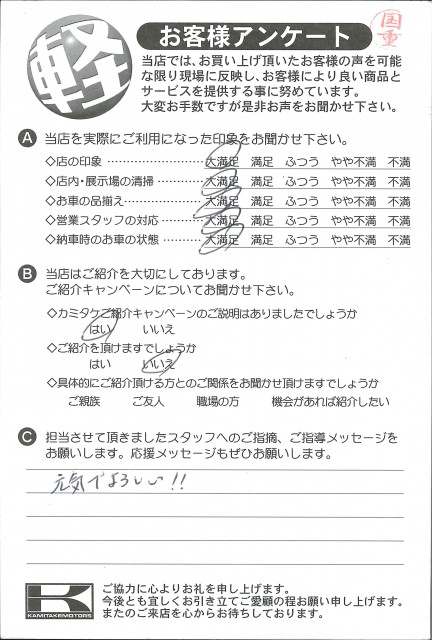 軽
お客様アンケート
国重
当店では、お買い上げ頂いたお客様の声を可能
な限り現場に反映し、お客様により良い商品と
サービスを提供する事に努めています。
大変お手数ですが是非お声をお聞かせ下さい。
A 当店を実際にご利用になった印象をお聞かせ下さい。
◇店の印象 ……………………… 大満足 満足 ふつう やや不満 不満
◇店内・展示場の清掃 ………… 大満足 満足 ふつう やや不満 不満
◇お車の品揃え ………………… 大満足 満足 ふつう やや不満 不満
◇営業スタッフの対応 ………… 大満足 満足 ふつう やや不満 不満
◇納車時のお車の状態 ………… 大満足 満足 ふつう やや不満 不満
B 当店はご紹介を大切にしております。
ご紹介キャンペーンについてお聞かせ下さい。
◇カミタケご紹介キャンペーンのご説明はありましたでしょうか
はい いいえ
◇ご紹介を頂けますでしょうか
はい いいえ
◇具体的にご紹介頂ける方とのご関係をお聞かせ頂けますでしょうか
ご親族 ご友人 職場の方 機会があれば紹介したい
C 担当させて頂きましたスタッフへのご指摘、ご指導メッセージを
お願いします。応援メッセージもぜひお願いします。
元気でよろしい!!
K
KAMITAKEMOTORS
ご協力に心よりお礼を申し上げます。
今後とも宜しくお引き立てご愛顧の程お願い申し上げます。
またのご来店を心からお待ちしております。